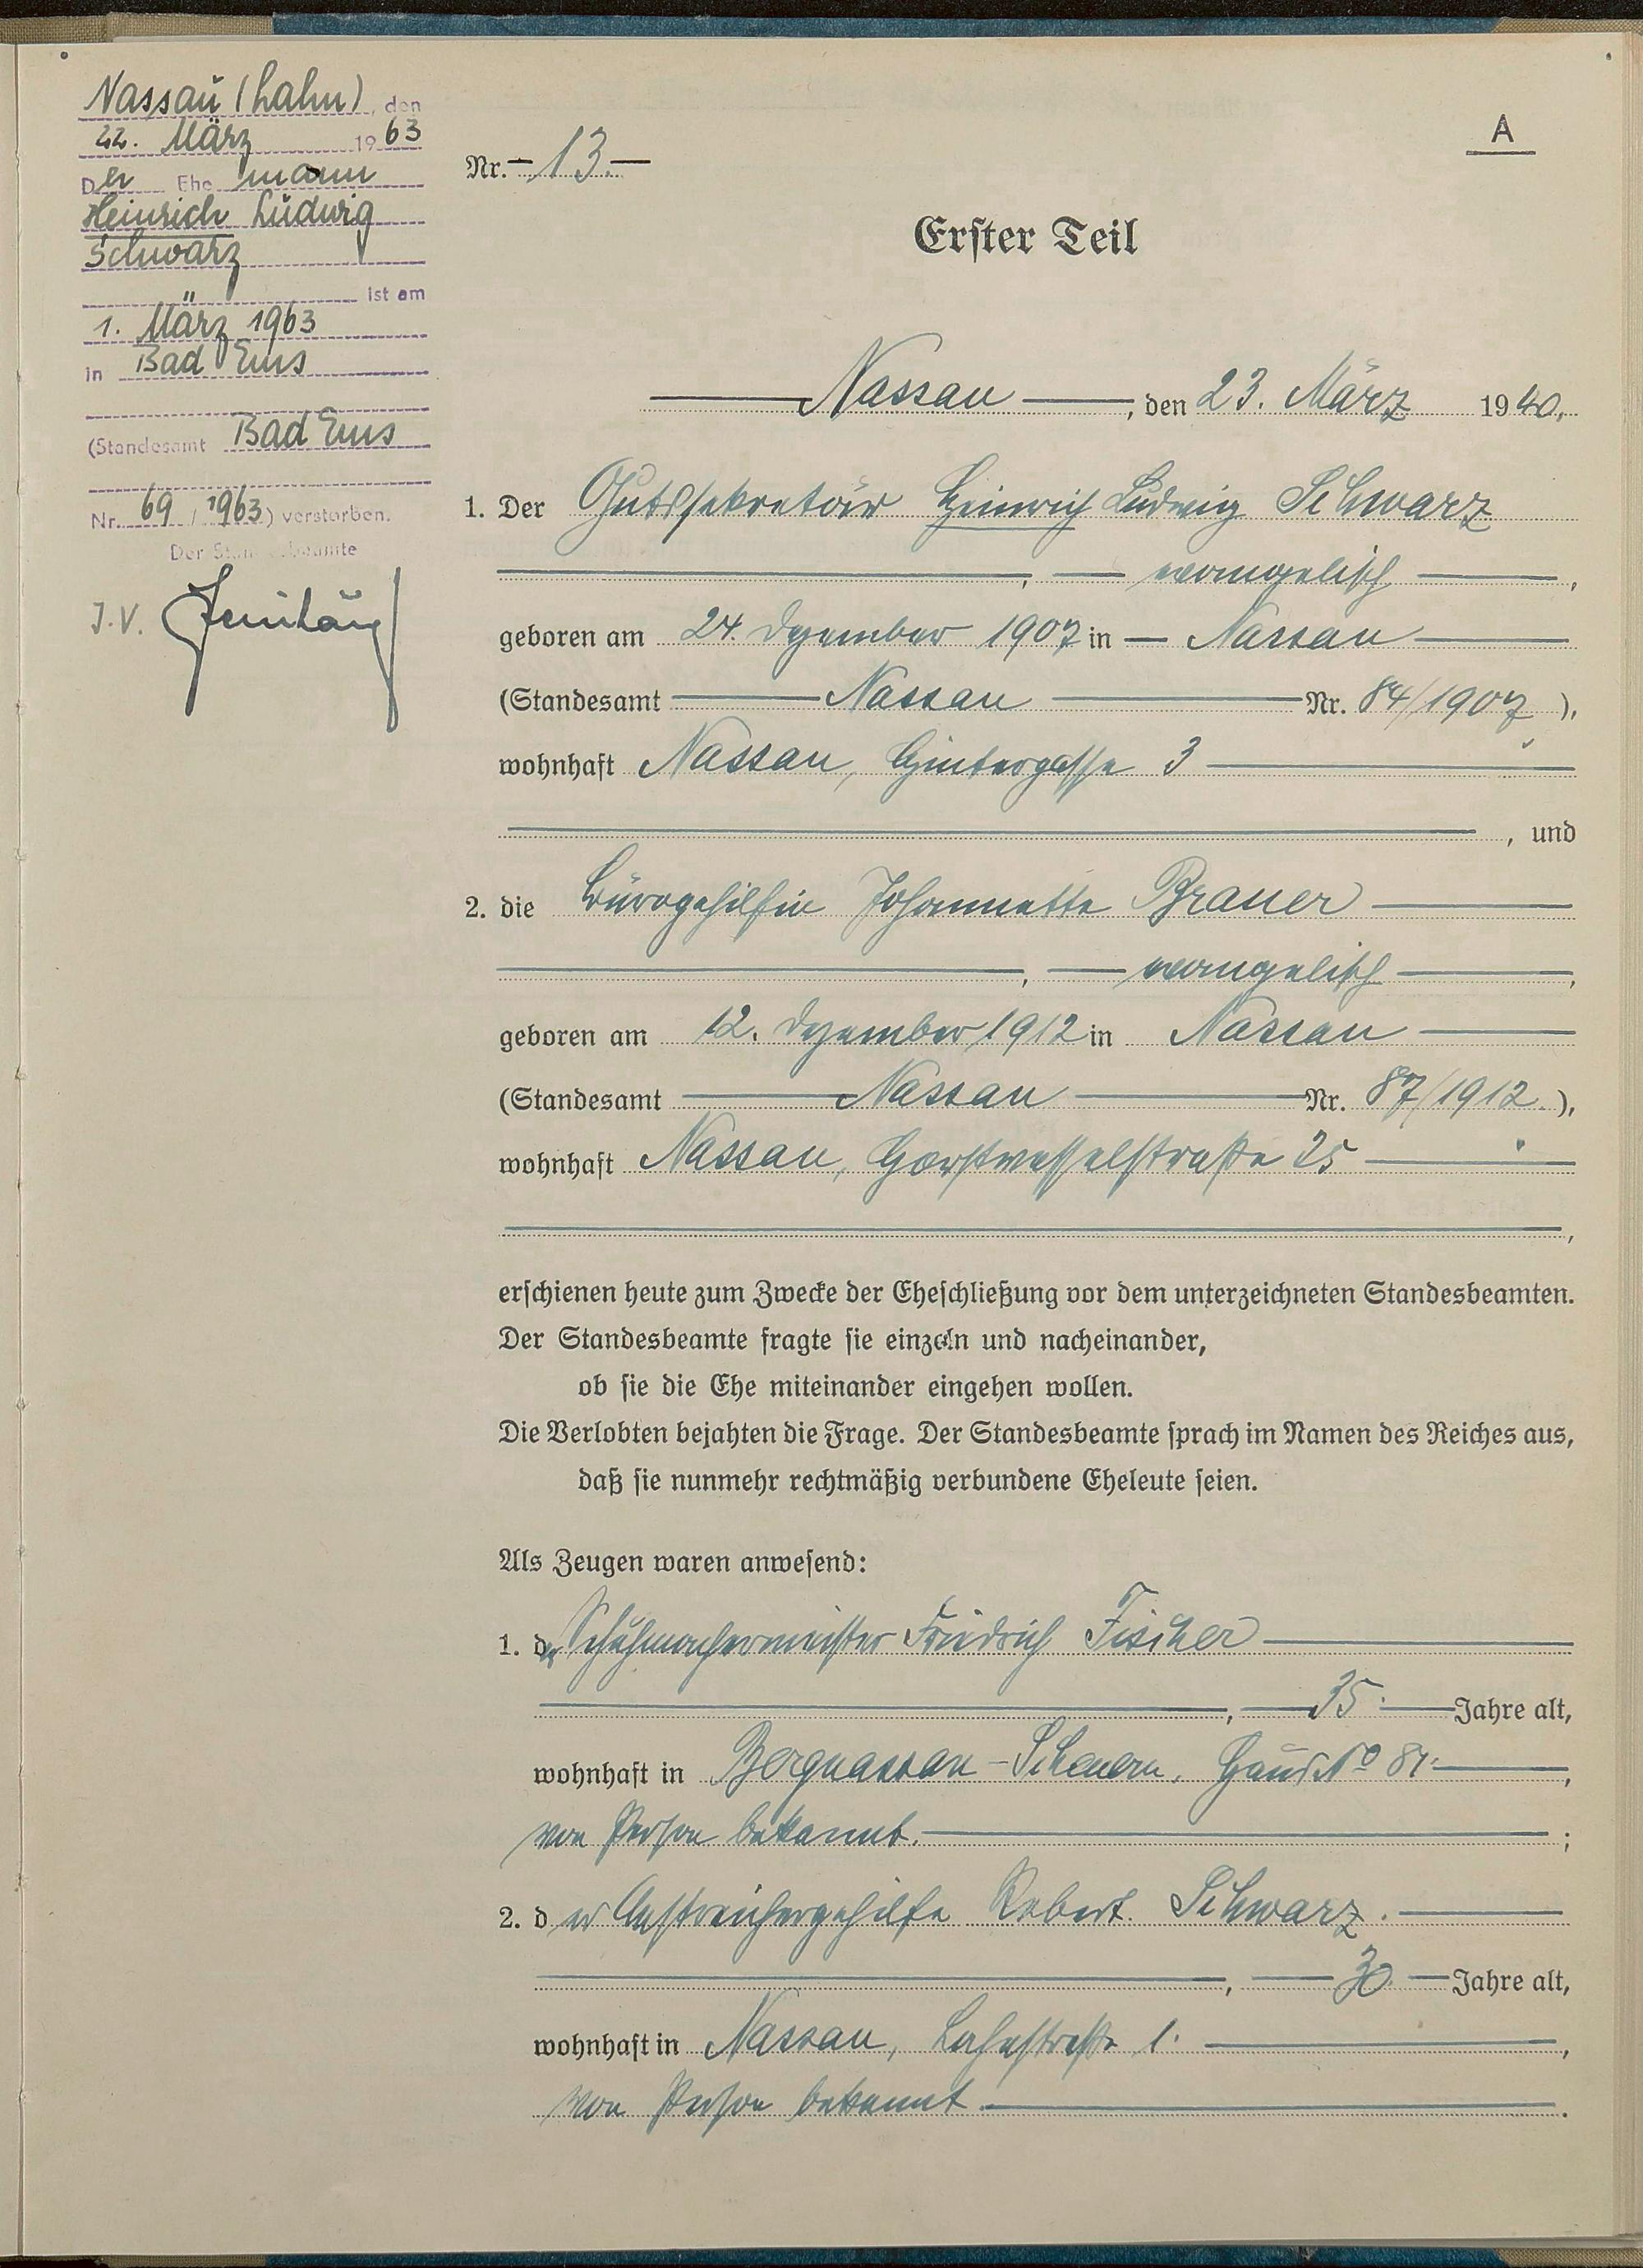 Nassau (Lahn), den
22. März 1963
Der Ehemann
Heinrich Ludwig
Schwarz
ist am
1. März 1963
in Bad Ems
(Standesamt Bad Ems
Nr. 69/1963) verstorben.
Der Standesbeamte
J.V.
A
Nr. 13.
Erster Teil
Nassau, den 23. März 1940.
1. Der Gutssekretär Heinrich Ludwig Schwarz
, evangelisch,
geboren am 24. Dezember 1907 in Nassau
(Standesamt Nassau Nr. 84/1907),
wohnhaft Nassau, Hintergasse 3
, und
2. die Bürogehilfin Johannette Brauer
, evangelisch,
geboren am 12. Dezember 1912 in Nassau
(Standesamt Nassau Nr. 87/1912.),
wohnhaft Nassau, Horstwesselstraße 25
,
erschienen heute zum Zwecke der Eheschließung vor dem unterzeichneten Standesbeamten.
Der Standesbeamte fragte sie einzeln und nacheinander,
ob sie die Ehe miteinander eingehen wollen.
Die Verlobten bejahten die Frage. Der Standesbeamte sprach im Namen des Reiches aus,
daß sie nunmehr rechtmäßig verbundene Eheleute seien.
Als Zeugen waren anwesend:
1. der Schuhmachermeister Friedrich Fischer
, 35 Jahre alt,
wohnhaft in Bergnassau-Scheuern, Haus No 81,
von Person bekannt.;
2. der Anstreichergehilfe Robert Schwarz.
, 30 Jahre alt,
wohnhaft in Nassau, Lahnstraße 1.,
von Person bekannt.